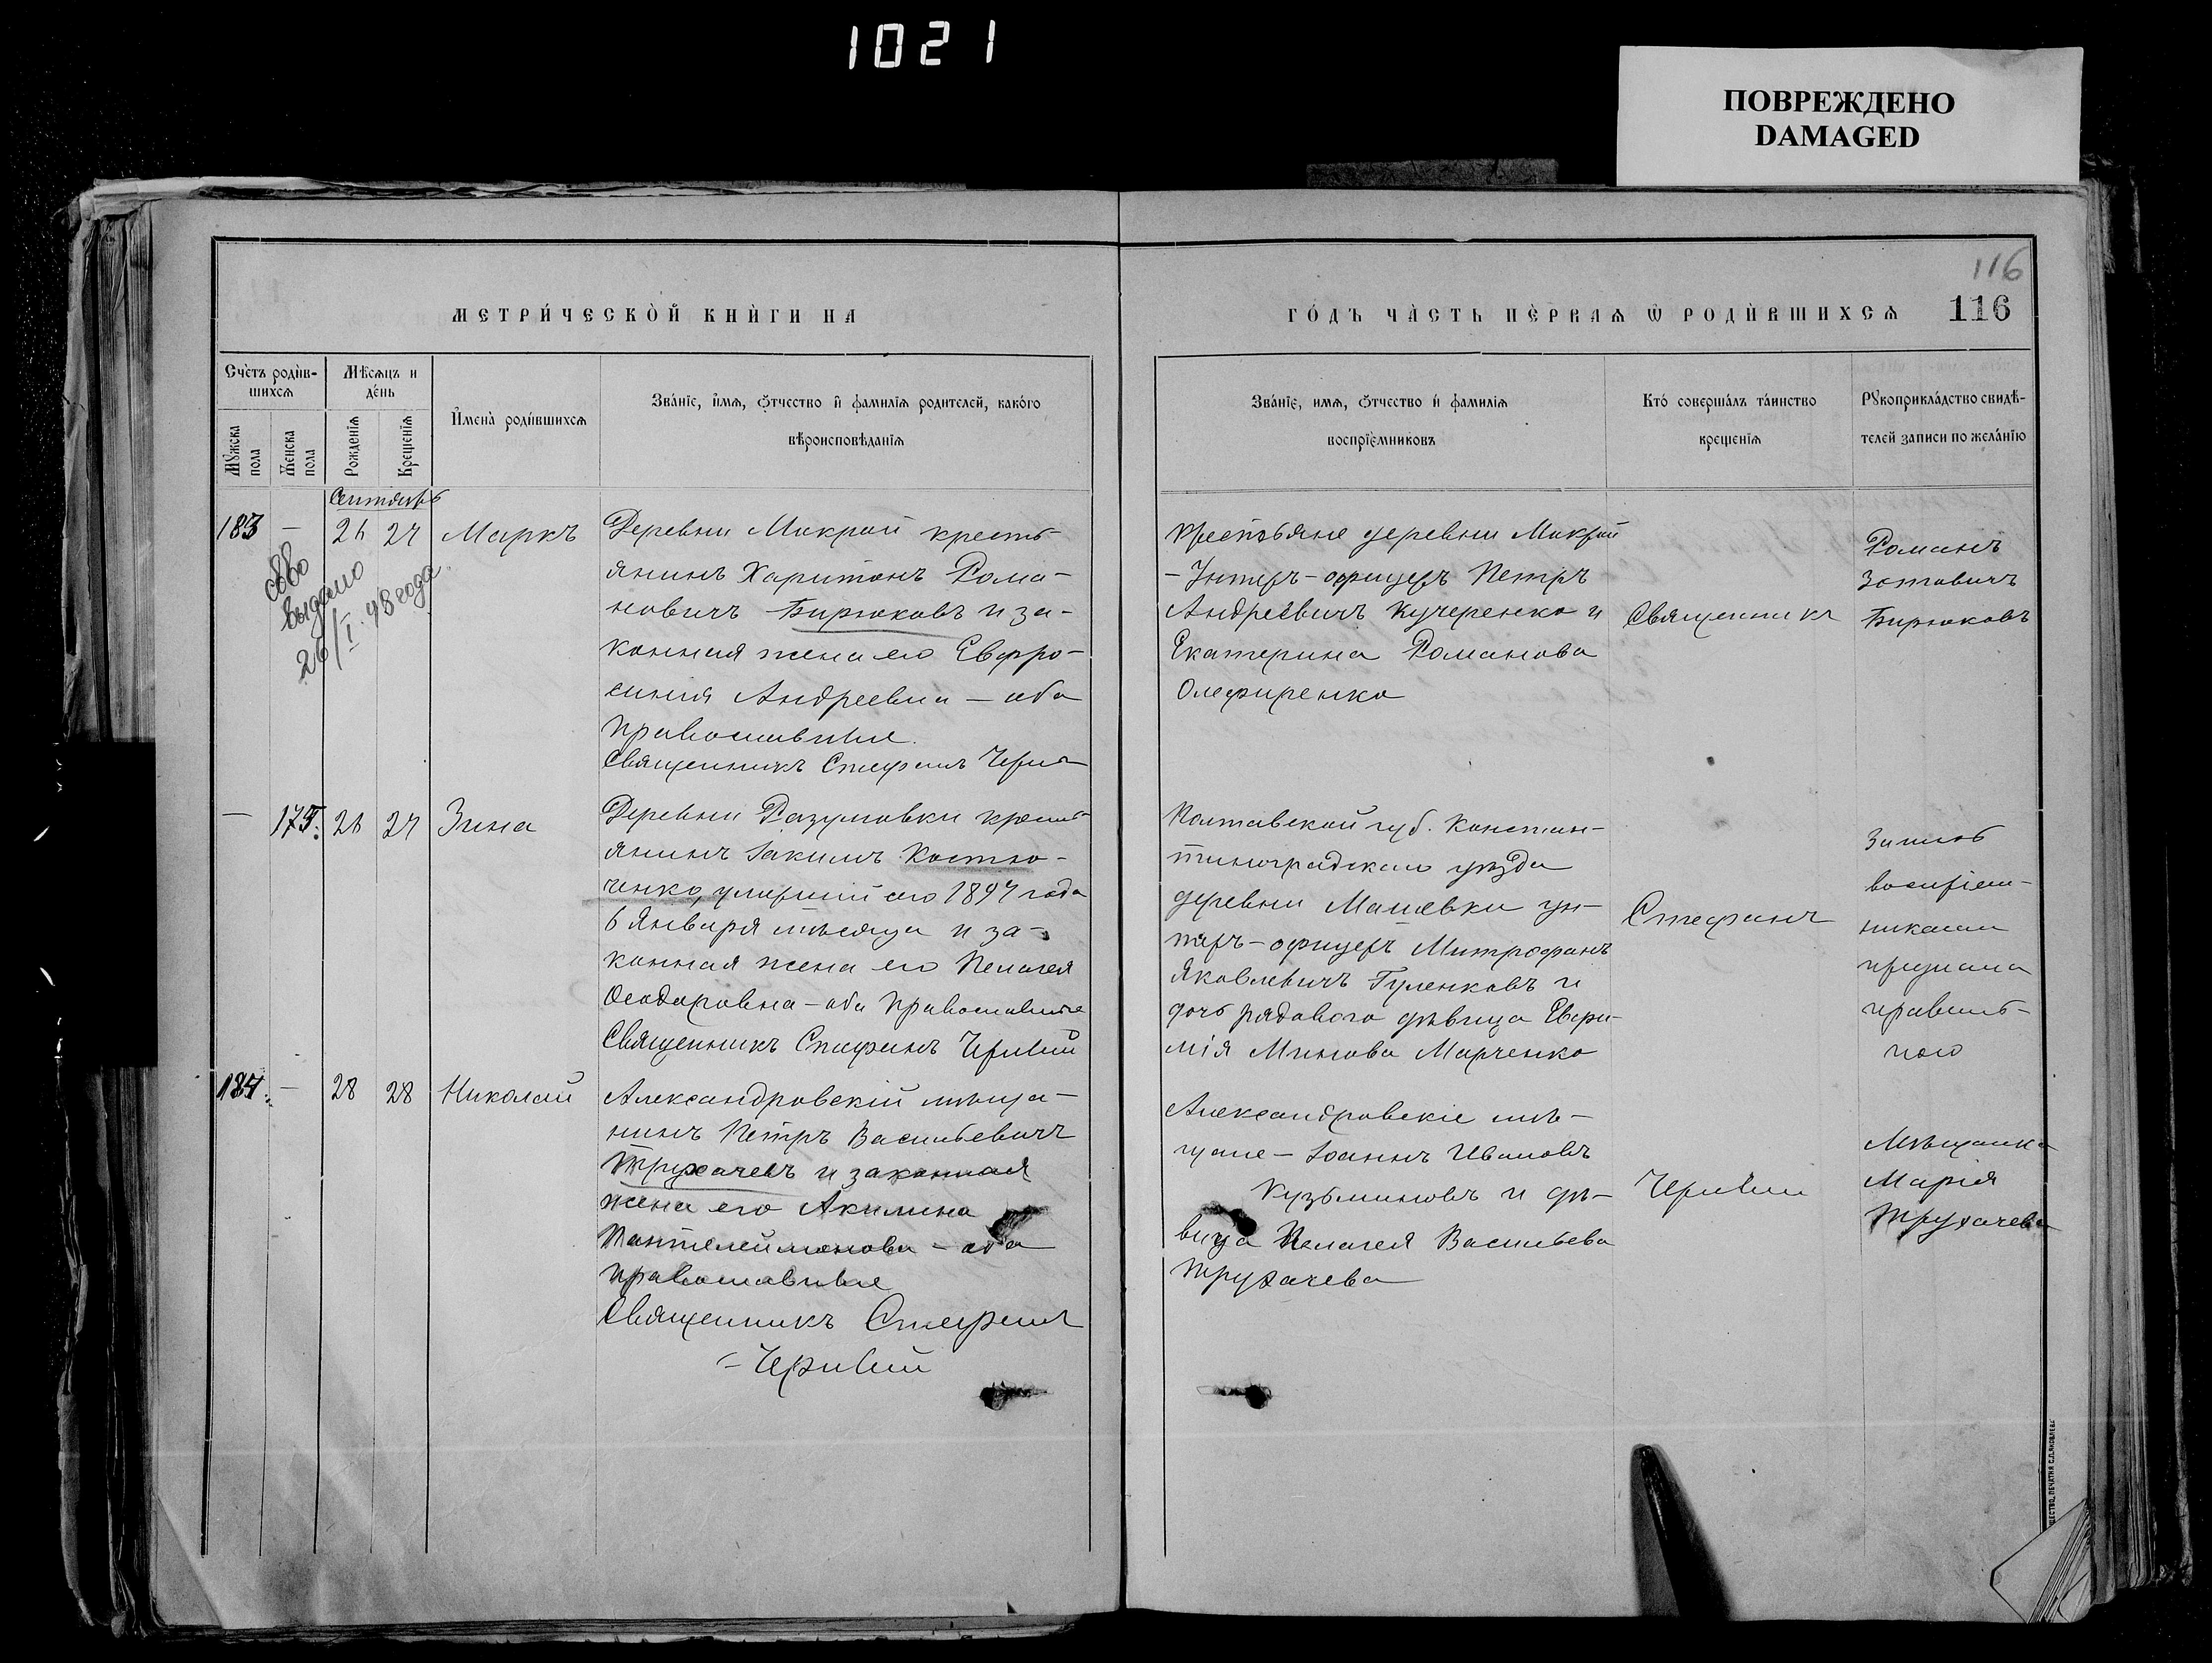 1021
ПОВРЕЖДЕНО
DAMAGED
116
МЕТРИ́ЧЕСКОЙ КНИ́ГИ НА
ГО́ДЪ ЧА́СТЬ ПЕ́РВАѦ Ѡ РОДИ́ВШИХСѦ 116
Сче́тъ роди́в-
шихсѧ
Мꙋ́жска
пола
Же́нска
пола
Мѣ́сѧцъ и
де́нь
Рожденїѧ
Крещенїѧ
И҆мена̀ роди́вшихсѧ
Зва́нїе, и҆́мѧ, ѻ҆́тчество и҆ фамилїѧ родителей, како́го
вѣроисповѣданїѧ
Зва́нїе, имѧ, ѻ҆́тчество и҆ фамилїѧ
воспрїе́мниковъ
Кто́ соверша́лъ та́инство
крещенїѧ
Рꙋкоприкла́дство свидѣ́-
телей записи по жела́нїю
Сентябрь
183 — 26 27 Маркъ
св-во
выдано
26/I 98 года
Деревни Мокрой кресть-
янинъ Харитонъ Рома-
новичъ Бирюковъ и за-
конная жена его Евфро-
синія Андреевна — оба
православные.
Священникъ Стефанъ
Крестьяне деревни Мокрой
— Унтеръ-офицеръ Петръ
Андреевичъ Кучеренко и
Екатерина Романова
Олефиренко
Священникъ
Романъ
Зотовичъ
Бирюковъ
— 175. 26 27 Зина
Деревни Разумовки кресть-
янинъ Іакимъ Костю-
ченко, умершій сего 1897 года
6 Января мѣсяца и за-
конная жена его Пелагея
Ѳеодоровна — оба православные
Священникъ Стефанъ
Полтавской губ. Констан-
тиноградскаго уѣзда
деревни Машевки ун-
теръ-офицеръ Митрофанъ
Яковлевичъ Гуленковъ и
дочь рядового дѣвица Евфи-
мія Минова Марченко
Стефанъ
Запись
воспріем-
никами
признана
правиль-
ною
184. — 28 28 Николай
Александровскій мѣща-
нинъ Петръ Васильевичъ
Трухачевъ и законная
жена его Акилина
Пантелеимонова — оба
православные
Священникъ Стефанъ
Александровскіе мѣ-
щане — Іоаннъ Ивановъ
Кузьминовъ и дѣ-
вица Пелагея Васильева
Трухачева
Мѣщанка
Марія
Трухачева